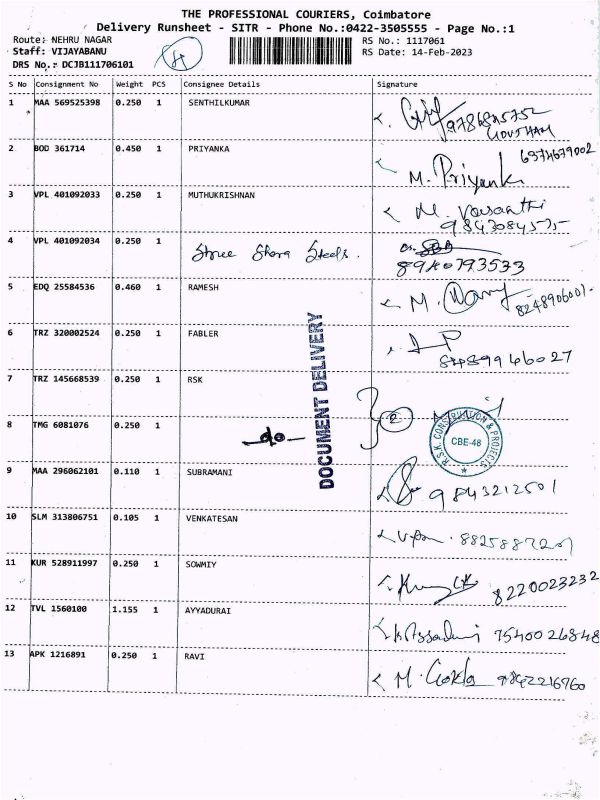 THE PROFESSIONAL COURIERS, Coimbatore
Delivery Runsheet - SITR - Phone No.:0422-3505555 - Page No.:1
Route: NEHRU NAGAR
RS No.: 1117061
Staff: VIJAYABANU
RS Date: 14-Feb-2023
DRS No.: DCJB111706101
S No Consignment No Weight PCS Consignee Details Signature
1 MAA 569525398 0.250 1 SENTHILKUMAR
GOVTHAM
2 BOD 361714 0.450 1 PRIYANKA 6374679002
M. Priyanka
3 VPL 401092033 0.250 1 MUTHUKRISHNAN M. Vasanthi
4 VPL 401092034 0.250 1 Shree Shara Steels.
8940793533
5 EDQ 25584536 0.460 1 RAMESH M.
8248906001.
6 TRZ 320002524 0.250 1 FABLER
7 TRZ 145668539 0.250 1 RSK
DOCUMENT DELIVERY
8 TMG 6081076 0.250 1 -do- 2
R.S.K. CONSTRUCTION & PROJECTS
CBE-48
9 MAA 296062101 0.110 1 SUBRAMANI 9843212501
10 SLM 313806751 0.105 1 VENKATESAN
11 KUR 528911997 0.250 1 SOWMIY 8220023232
12 TVL 1560100 1.155 1 AYYADURAI 7540026848
13 APK 1216891 0.250 1 RAVI M. Gokla 9842216760